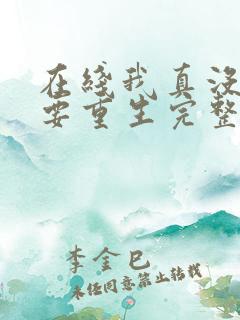 在线我真没
要重生完整
李金巳
未经同意禁止转载